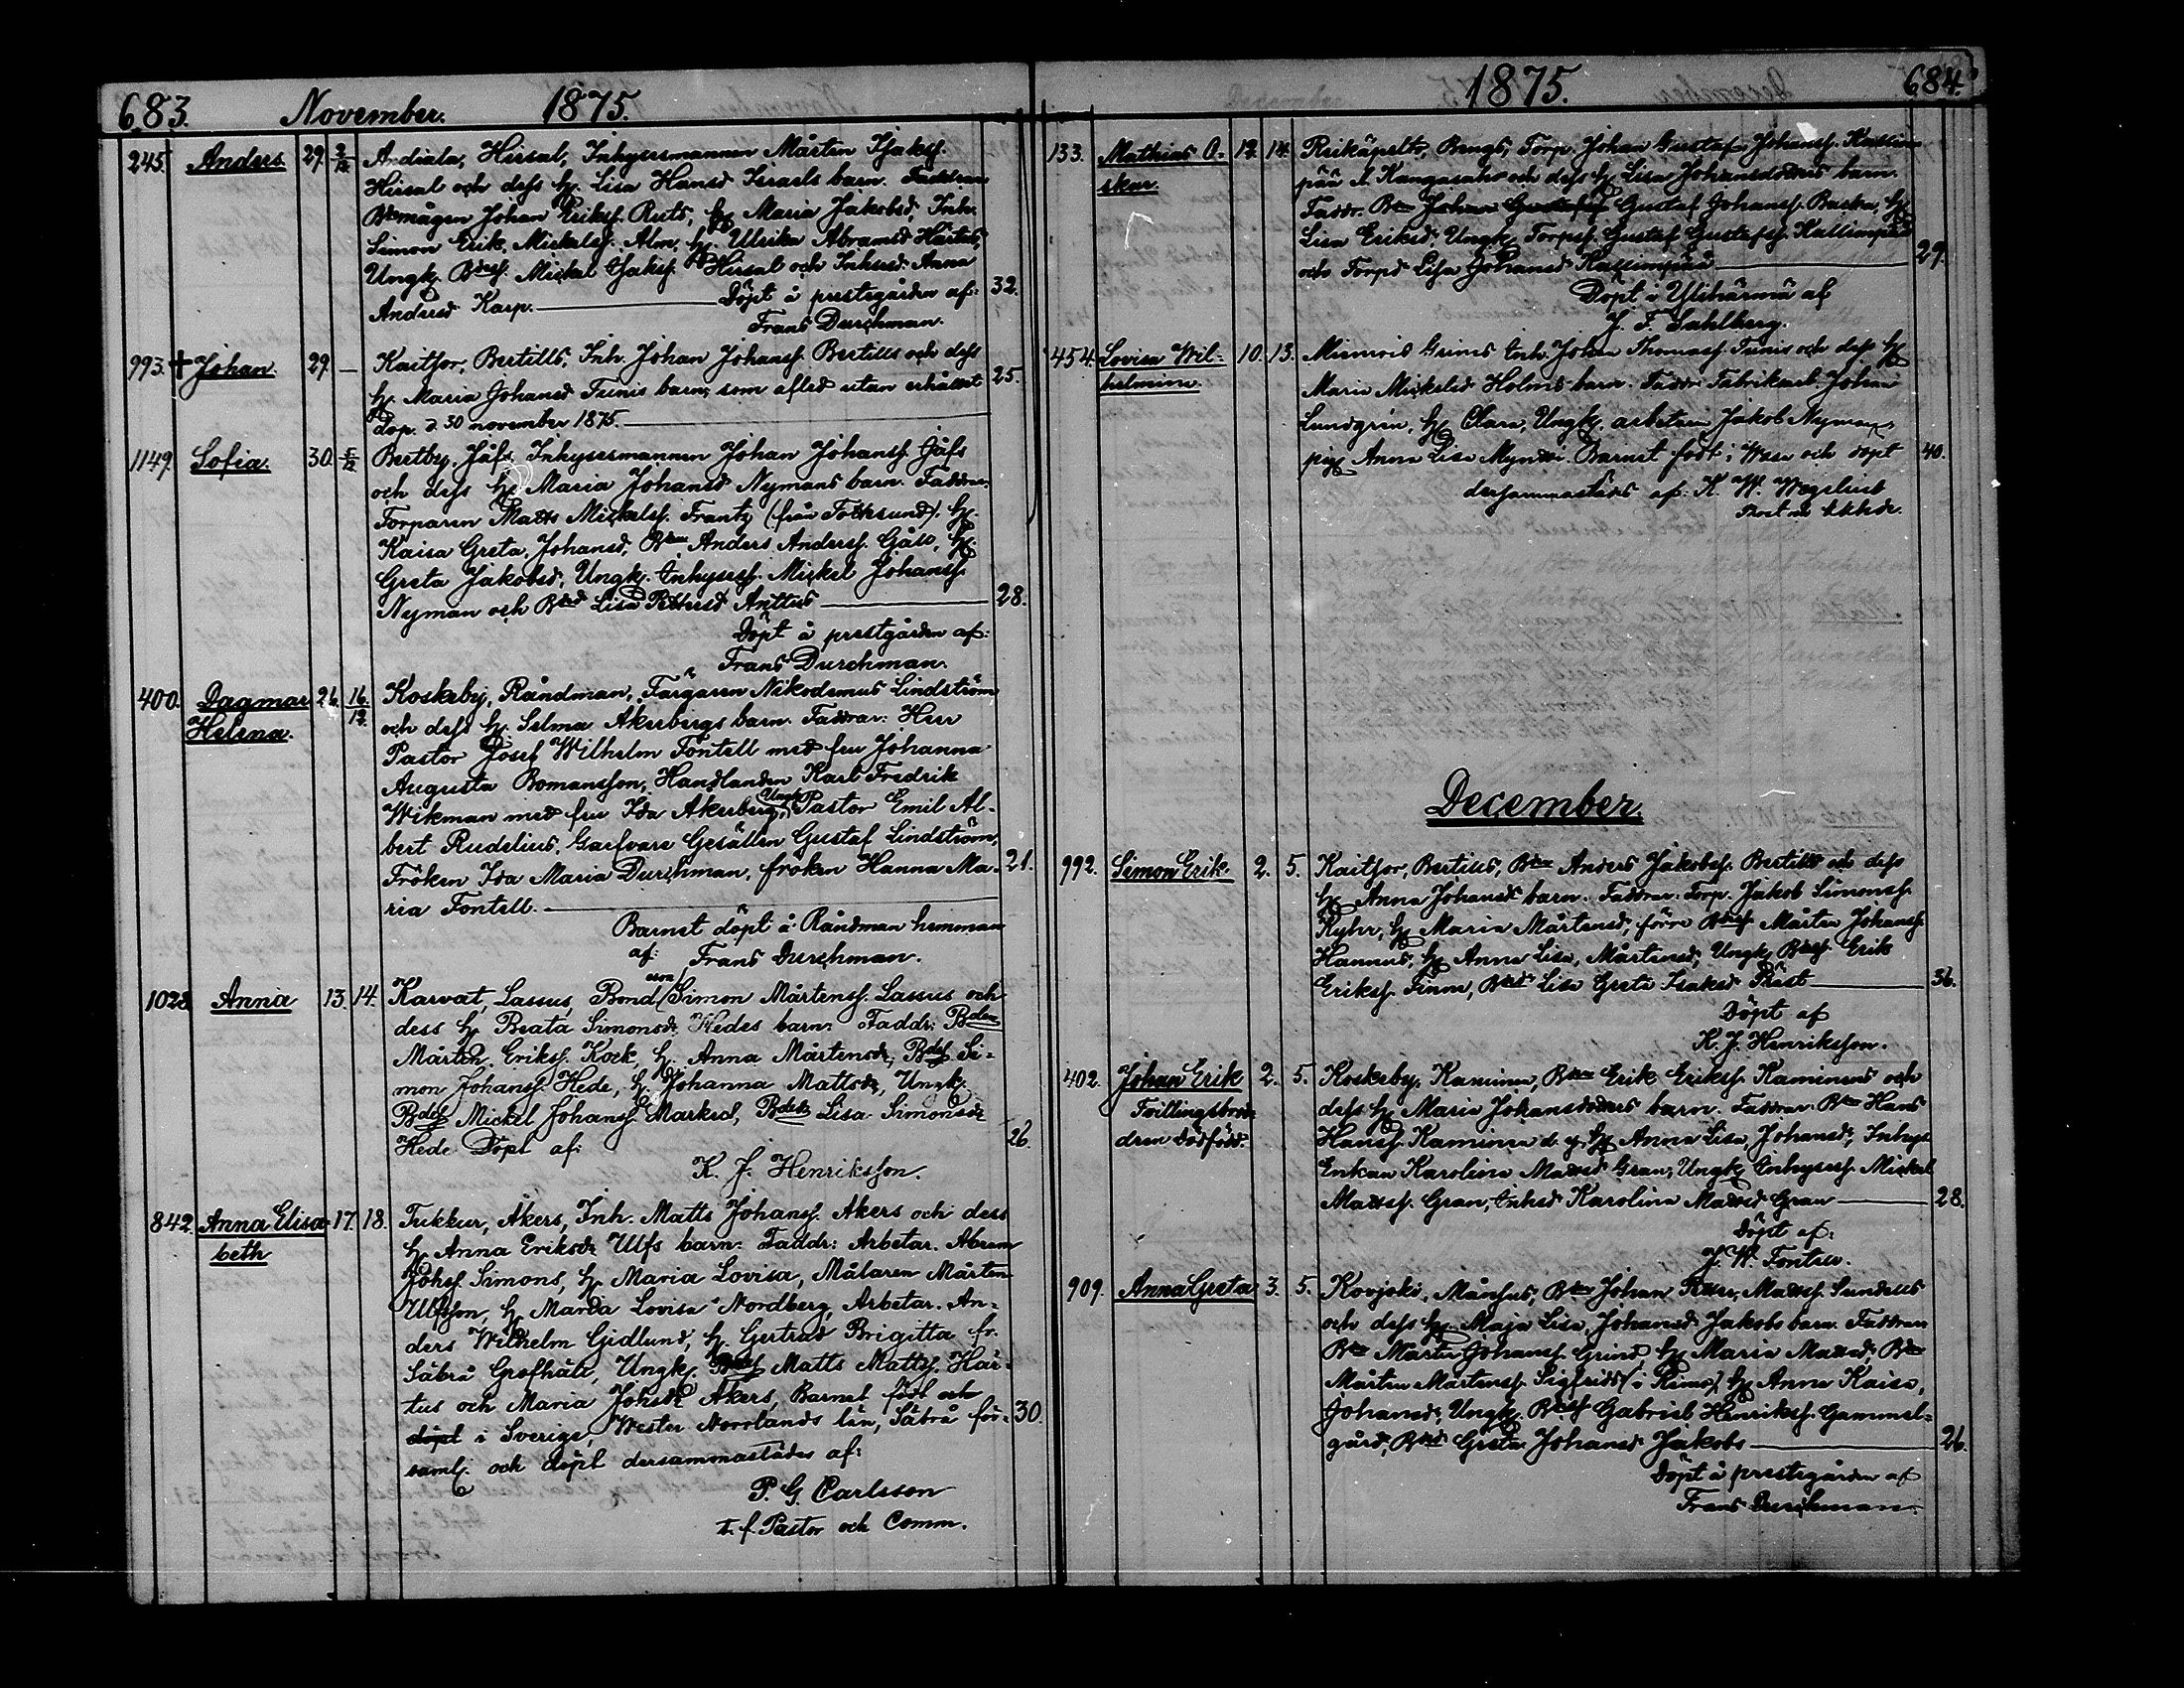 683. November. 1875.
245. Anders 29. 2/12 Andiala, Hirsal, Inhysesmannen Mårten Isakss.
Hirsal och dess h. Lisa Hansd. Israels barn. Faddrar
Bdemågen Johan Erikss. Ruts, h. Maria Jakobsd., Inh.
Simon Erik Mickelss. Alm, h. Ulrika Abramsd Härtus,
Ungk. Bdess. Mickel Isakss. Hirsal och Inhsesd. Anna
Andersd. Karp. Döpt å prestgården af: 32.
Frans Durchman.
993. † Johan 29. — Kaitsor, Bertills, Inh. Johan Johanss. Bertills och dess
h. Maria Johansd Tunis barn, som afled utan erhållet 25.
dop. d. 30 november 1875.
1149. Sofia. 30. 5/12 Bertby, Jåfs, Inhysesmannen Johan Johanss. Jåfs
och dess h. Maria Johansd Nymans barn. Faddrar.
Torparen Matts Mickelss. Frantz (från Tottesund), h.
Kaisa Greta, Johansd., Bden Anders Anderss. Gåso, h.
Greta Jakobsd., Ungk. Inhysess. Mickel Johanss.
Nyman och Bded Lisa Pettersd Anttus 28.
Döpt å prestgården af:
Frans Durchman.
400. Dagmar 26. 16./12. Koskeby, Råndman, Färgaren Nikodemus Lindström
Helena. och dess h. Selma Akerbergs barn. Faddrar: Herr
Pastor Josef Wilhelm Fontell med fru Johanna
Augusta Bomansson, Handlanden Karl Fredrik
Wikman med fru Ida Akerberg, Ungk. Pastor Emil Al-
bert Rudelius, Garfvare Gesällen Gustaf Lindström,
Fröken Ida Maria Durchman, fröken Hanna Ma- 21.
ria Fontell.
Barnet döpt å Råndman hemman
af: Frans Durchman.
1028 Anna 13. 14. Karvat, Lassus, Bondeson Simon Mårtenss. Lassus och
dess h. Beata Simonsdr. Hedes barn: Faddr: Bden
Mårten Erikss. Kock, h. Anna Mårtensdr, Bdess Si-
mon Johanss. Hede, h. Johanna Mattsdr, Ungk.
Bdess Mickel Johanss. Markus, Bdedr Lisa Simonsdr
Hede Döpt af: 26.
K. J. Henriksson.
842. Anna Elisa- 17. 18. Tukkur, Åkers, Inh. Matts Johanss. Akers och dess
beth h. Anna Eriksdr Ulfs barn: Faddr: Arbetar. Abram
Johss. Simons, h. Maria Lovisa, Målaren Mårten
Ulfsson, h. Maria Lovisa Nordberg, Arbetar. An-
ders Wilhelm Gidlund, h. Gertrud Brigitta fr.
Säbrå Grofhält, Ungk. Bdess Matts Mattss. Här-
tus och Maria Johsdr Åkers, Barnet född och
döpt i Sverige, Wester Norrlands län, Säbrå för- 30.
saml. och döpt dersammastädes af:
P. G. Carlsson
t. f. Pastor och Comm.
1875. 684.
133. Mathias O- 12. 14. Reikäpelto, Bengs, Torp. Johan Gustaf Johanss. Kassin
skar. pää l. Kangasaho och dess h. Lisa Johansdotters barn.
Faddr. Bden Johan Gustafss Gustaf Johanss. Backa, h.
Lisa Eriksd., Ungk. Torpss. Gustaf Gustafss. Kassinpää
och Torpd Lisa Johansd Kassinpää 29.
Döpt i Ylihärmä af
J. F. Sahlberg.
454. Lovisa Wil- 10. 13. Miemois Grims Inh. Johan Thomass. Tunis och dess h.
helmina Maria Mickelsd Holms barn. Faddr. Fabriksarb. Johan
Lundgrén, h. Clara, Ungk. arbetaren Jakob Nyman,
pig. Anna Lisa Myntti. Barnet född i Wasa och döpt 40.
dersammastädes af: K. W. Wegelius
December.
992. Simon Erik. 2. 5. Kaitsor, Bertills, Bden Anders Jakobss. Bertills och dess
h. Anna Johansds barn. Faddrar. Torp. Jakob Simonss.
Ryhr, h. Maria Mårtensd., förre Bdess Mårten Johanss.
Hannus, h. Anna Lisa, Mårtensd., Ungk. Bdess. Erik
Erikss. Finne, Bded. Lisa Greta Isaksd. Präst 36.
Döpt af
K. J. Henriksson.
402. Johan Erik 2. 5. Koskeby, Kaminen, Bden Erik Erikss. Kaminens och
Tvillingsbro- dess h. Maria Johansdotters barn. Faddrar: Bden Hans
dren dödfödd. Hanss. Kaminen d. y. h. Anna Lisa, Johansd., Inhys
Enkan Karolina Mattsd. Gran, Ungk. Inhysess. Mickel
Mattss. Gran, Inhsd Karolina Mattsd. Gran 28.
Döpt af:
J. W. Fontell.
909. Anna Greta 3. 5. Kovjoki, Månsus, Bden Johan Petter, Mattss. Sundells
och dess h. Maja Lisa, Johansd. Jakobs barn. Faddrar
Bden Mårten Johanss. Grind, h. Maria Mattsd., Bden
Mårten Mårtenss. Sigfrids (i Rimo), h. Anna Kaisa,
Johansd., Ungk. Bdess Gabriel Henrikss. Gammel-
gård, Bded Greta Johansd. Jakobs 26.
Döpt å prestegården af
Frans Durchman.